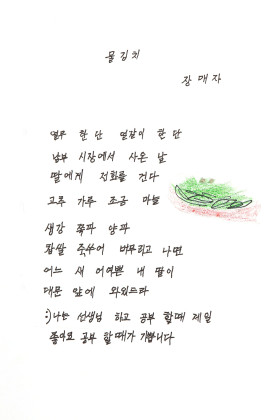 물김치
장매자
열무 한 단 얼갈이 한 단
남부 시장에서 사온 날
딸에게 전화를 건다
고추 가루 조금 마늘
생강 쪽파 양파
찹쌀 죽쑤어 버무리고 나면
어느 새 어여쁜 내 딸이
대문 앞에 와있드라
:)나는 선생님 하고 공부 할때 제일
좋아요 공부 할때가 기쁨니다